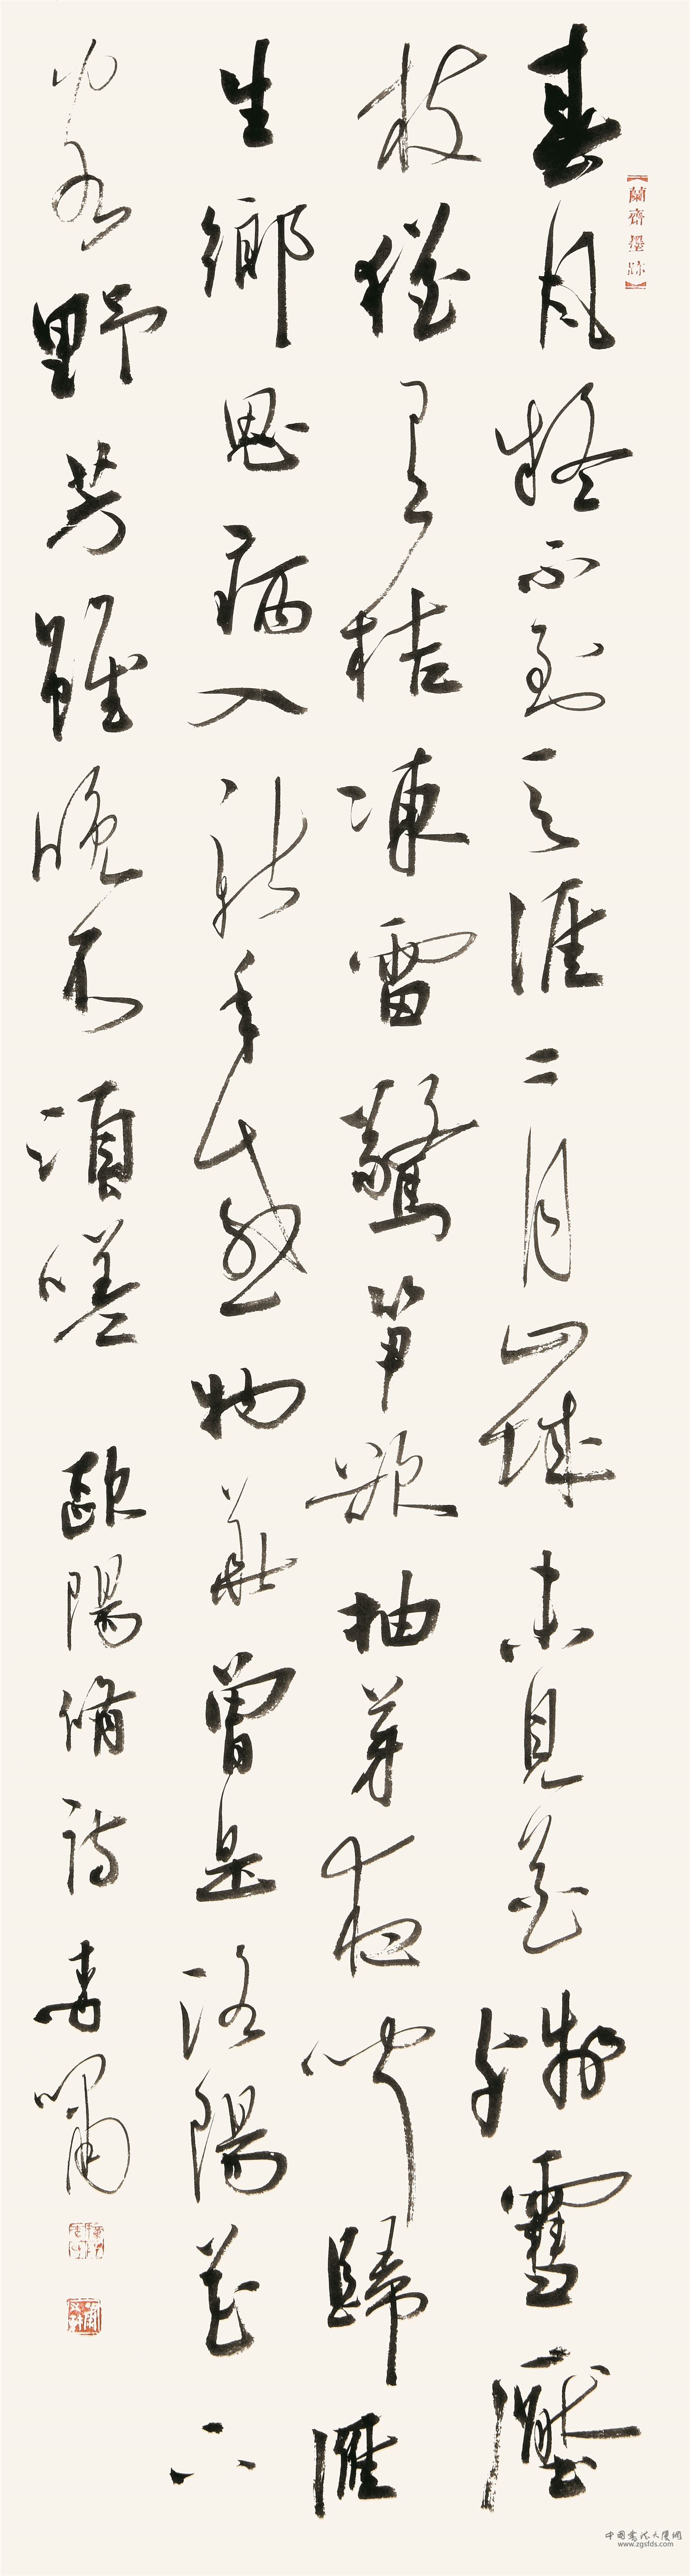 【蘭齋墨跡】
春風疑不到天涯二月山城未見花殘雪壓
枝猶有桔凍雷驚笋欲抽芽夜聞歸雁
生鄉思病入新年感物華曾是洛陽花下
客野芳雖晚不須嗟 歐陽脩詩 嘯
中國書法大廈網
www.zgsfds.com